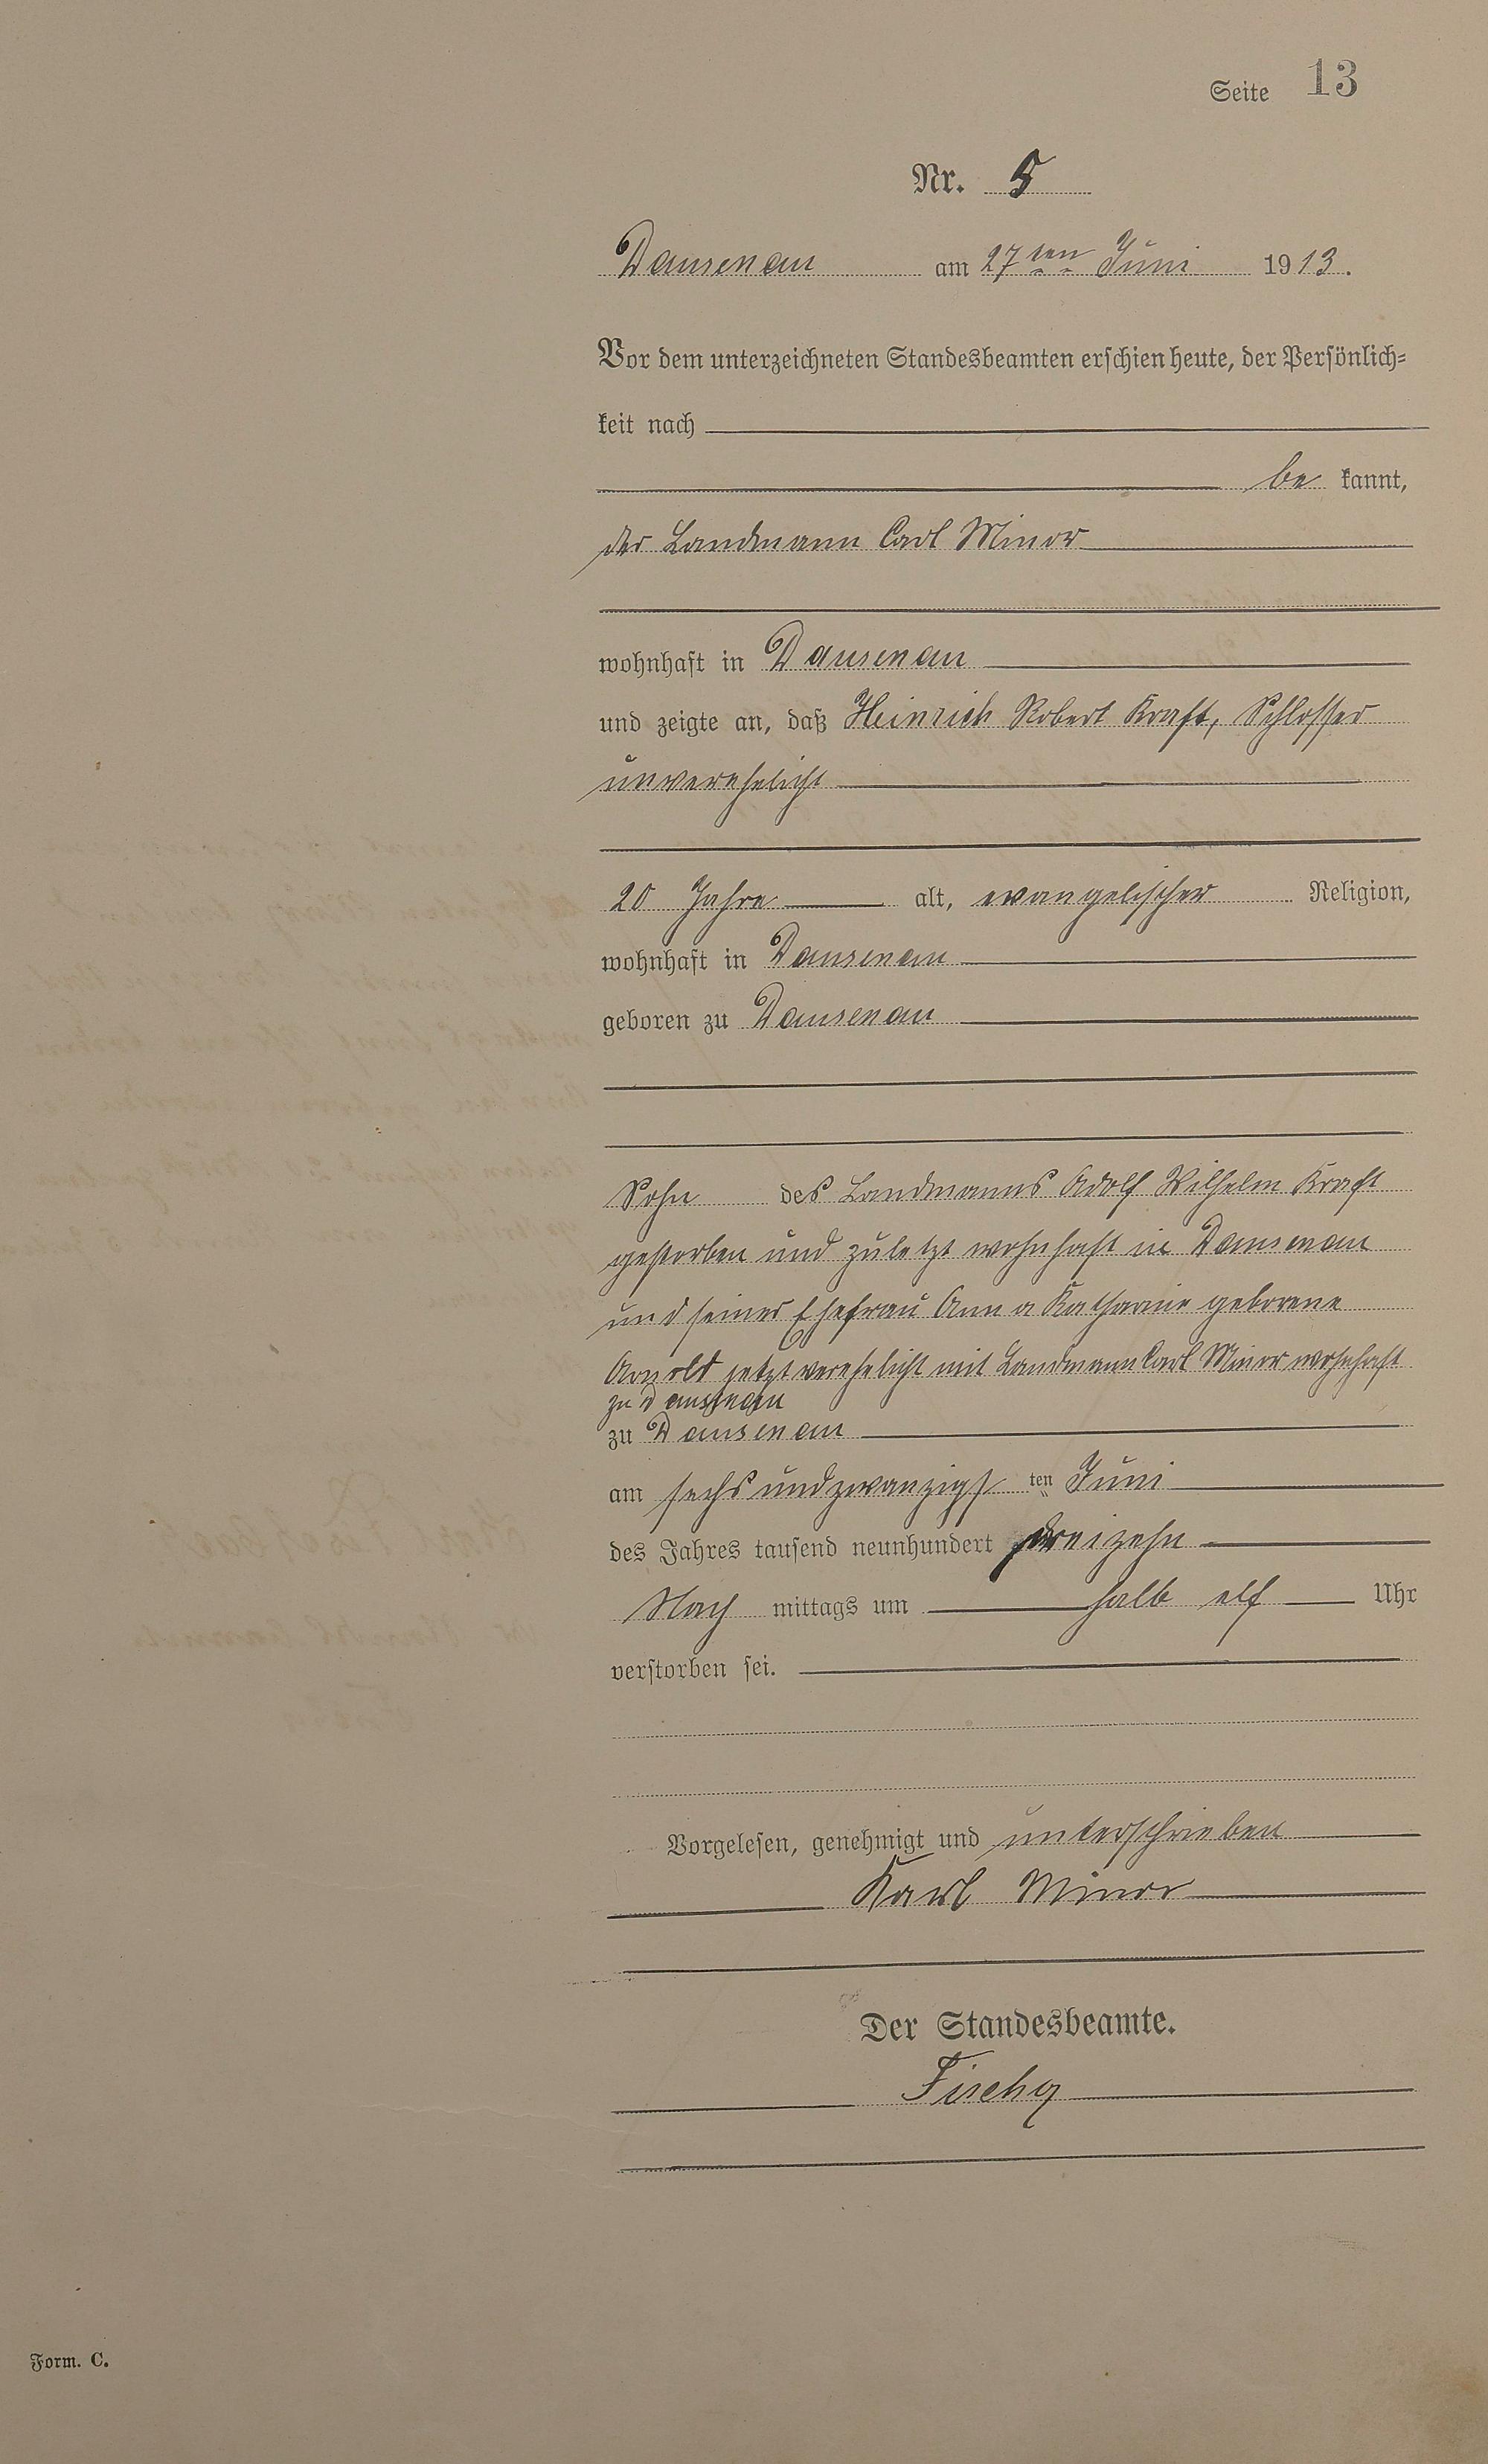 Seite 13
Nr. 5
Dausenau am 27ten Juni 1913.
Vor dem unterzeichneten Standesbeamten erschien heute, der Persönlich=
keit nach
be kannt,
der Landmann Carl Minor
wohnhaft in Dausenau
und zeigte an, daß Heinrich Robert Kraft, Schlosser
unverehelicht
20 Jahre alt, evangelischer Religion,
wohnhaft in Dausenau
geboren zu Dausenau
Sohn des Landmanns Adolf Wilhelm Kraft
gestorben und zuletzt wohnhaft in Dausenau
und seiner Ehefrau Anna Katharine geborene
Arnold jetzt verehelicht mit Landmann Carl Minor wohnhaft
zu Dausenau
zu Dausenau
am sechsundzwanzigsten Juni
des Jahres tausend neunhundert dreizehn
Nach mittags um halb elf Uhr
verstorben sei.
Vorgelesen, genehmigt und unterschrieben
Karl Minor
Der Standesbeamte.
Form. C.